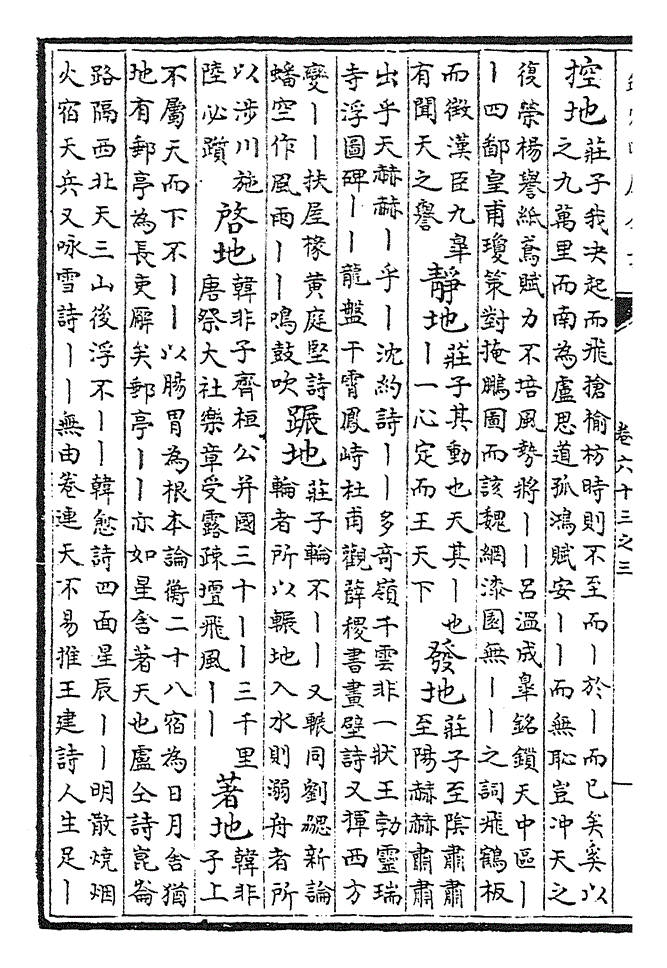 卷六十三之三
一
控地
莊子我决起而飛搶榆枋時則不至而丨於丨而已矣奚以
之九萬里而南為盧思道孤鴻賦安丨丨而無恥豈冲天之
復榮楊譽紙鳶賦力不培風勢將丨丨吕溫成臯銘鎖天中區丨
丨四鄙皇甫瓊策對掩鵬圖而該魏網漆園無丨丨之詞飛鶴板
而徵漢臣九臯
有聞天之譽
靜地
莊子其動也天其丨也
丨一心定而王天下
發地
莊子至陰肅肅
至陽赫赫肅肅
出乎天赫赫丨乎丨沈約詩丨丨多奇嶺千雲非一狀王勃靈瑞
寺浮圖碑丨丨龍盤干霄鳳峙杜甫觀薛稷書畫壁詩又揮西方
變丨丨扶屋椽黄庭堅詩
蟠空作風雨丨丨鳴鼓吹
蹍地
莊子輪不丨丨又輾同劉勰新論
輪者所以輾地入水則溺舟者所
以涉川施
陸必躓
啓地
韓非子齊桓公并國三十丨丨三千里
唐祭大社樂章受露疎壇飛風丨丨
著地
韓非
子上
不屬天而下不丨丨以腸胃為根本論衡二十八宿為日月舍猶
地有郵亭為長吏廨矣郵亭丨丨亦如星舍著天也盧仝詩崑崙
路隔西北天三山後浮不丨丨韓愈詩四面星辰丨丨明散燒烟
火宿天兵又咏雪詩丨丨無由卷連天不易推王建詩人生足丨